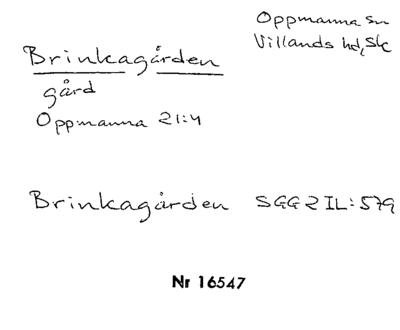 Oppmanna sn
Villands hd, Sk
Brinkagården
gård
Oppmanna 21:4
Brinkagården SGG 2 IL: 579
Nr 16547